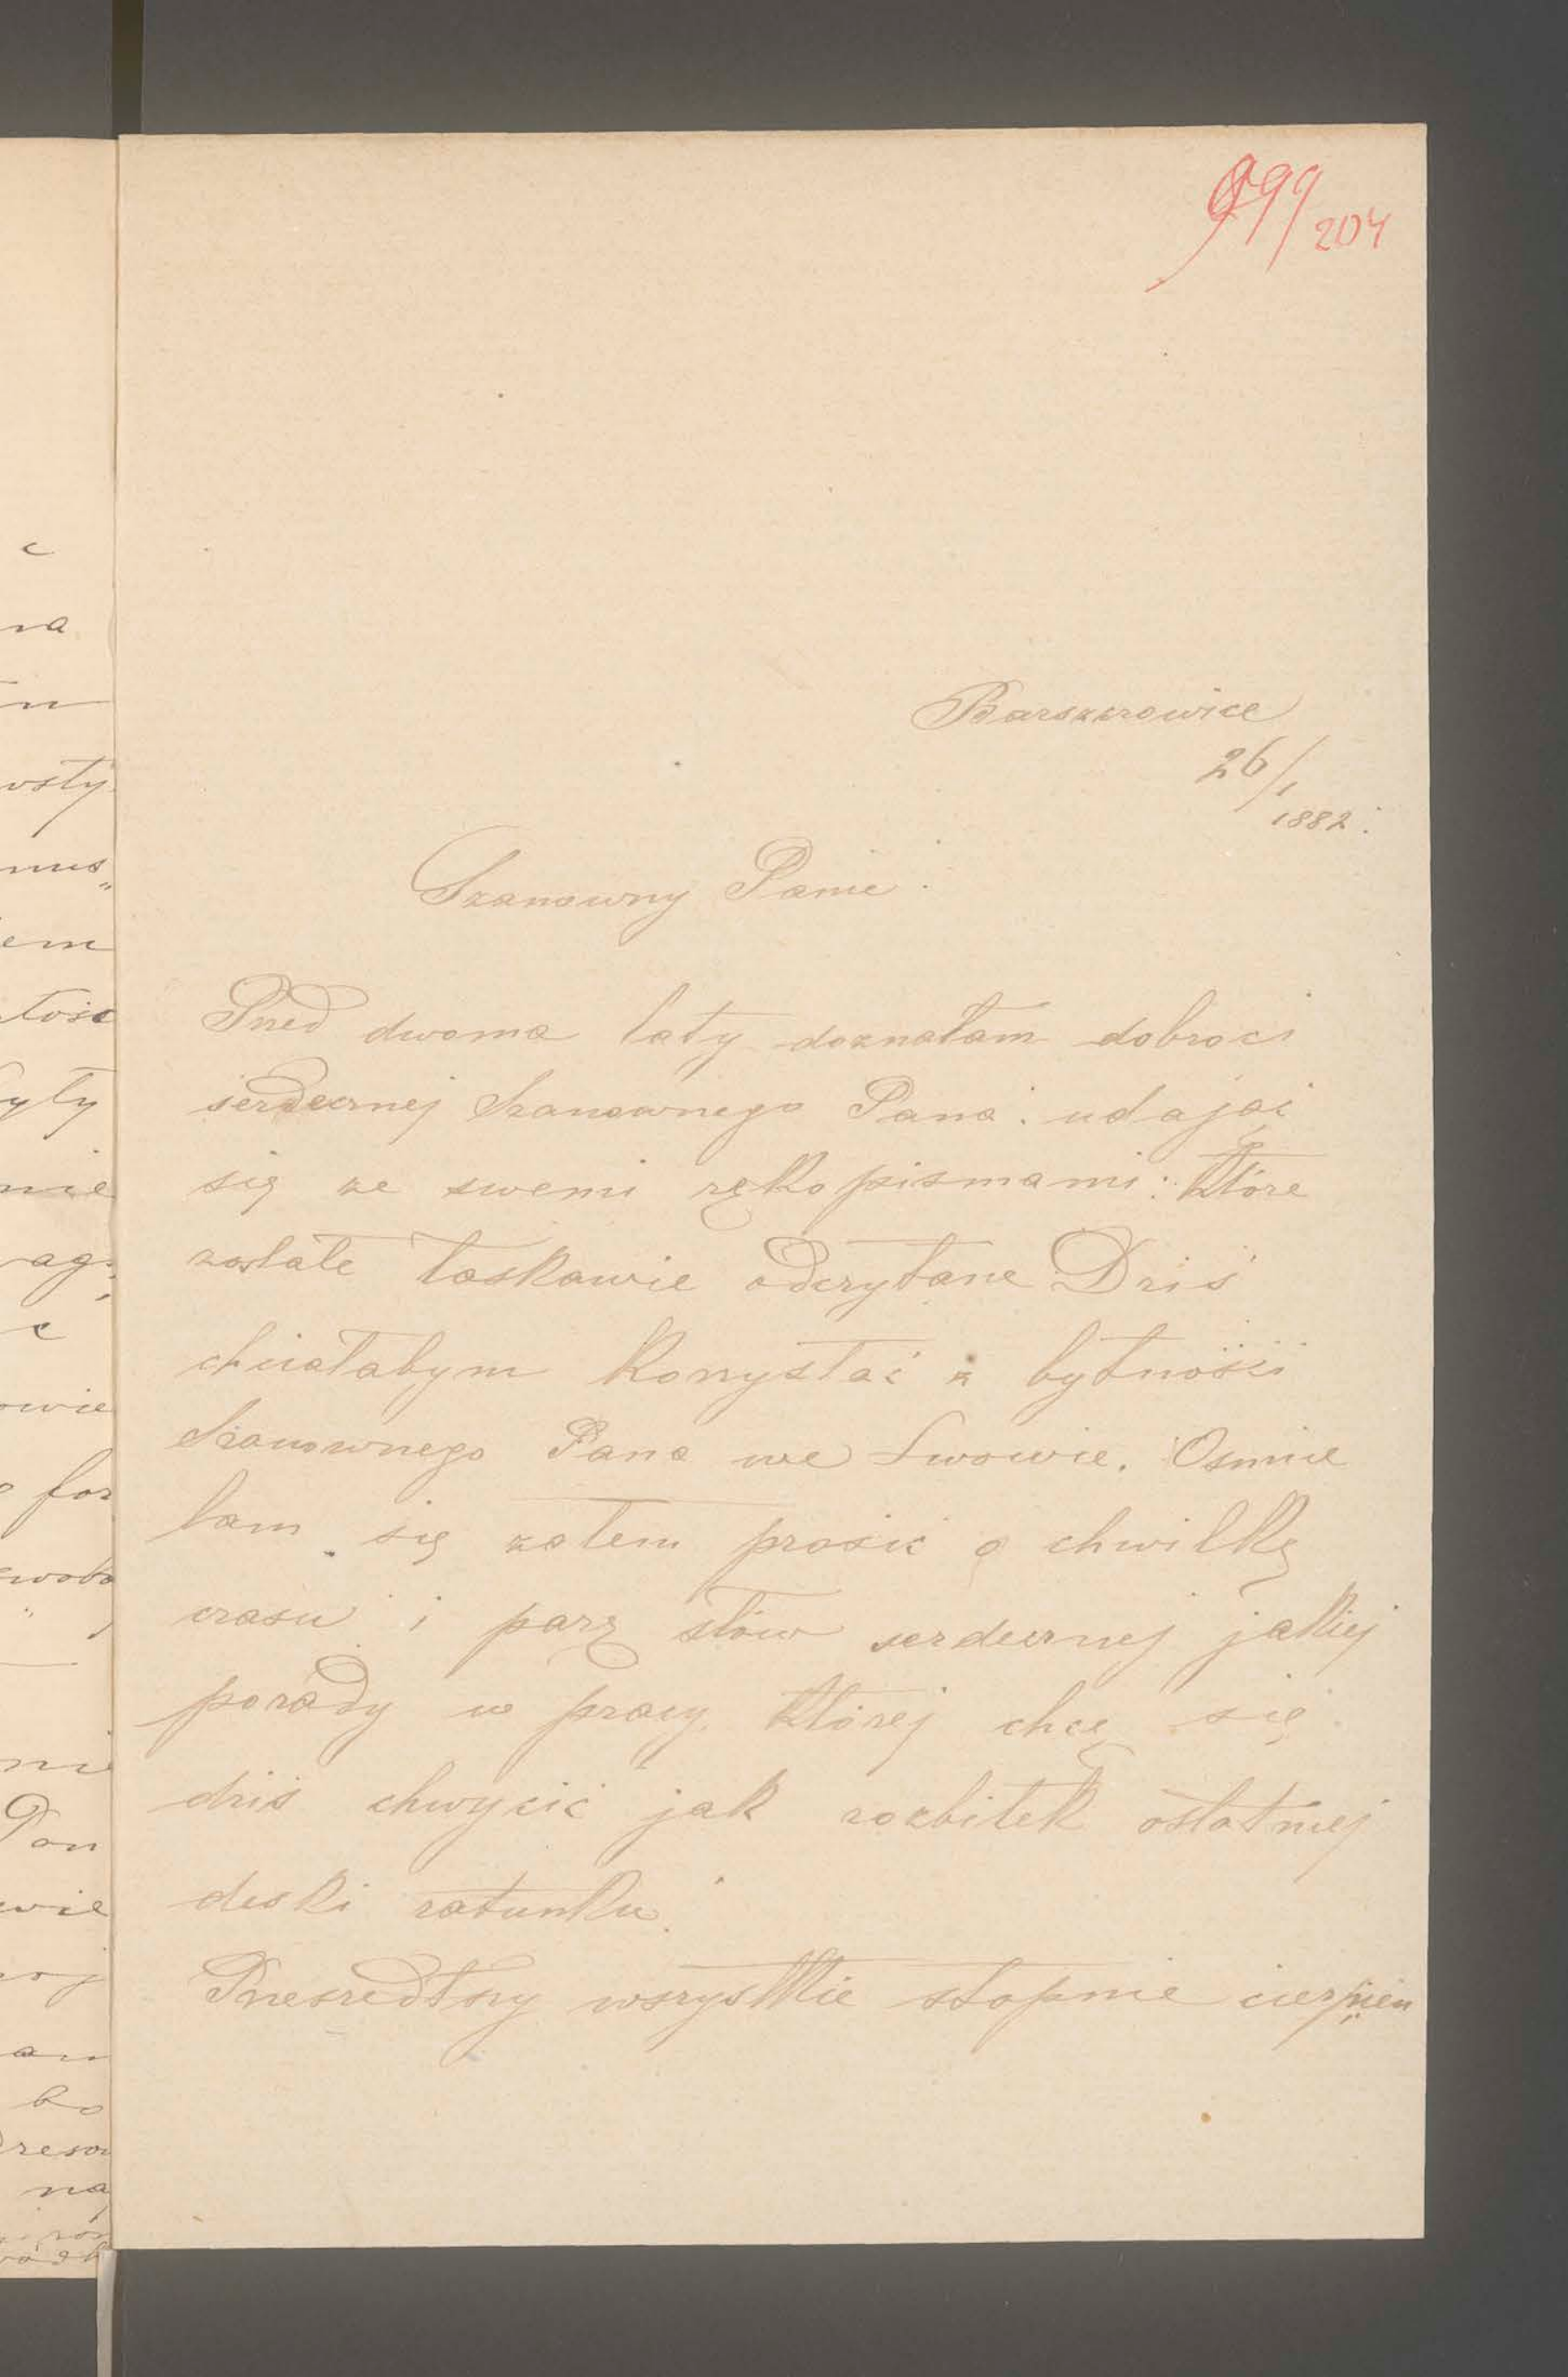 999/204
c
na
wsty
mus„
em
tość
yty
nie
ag„
c
owie
for
nie
Pan
wie
na
Barszczowice
26/1
1882.
Szanowny Panie.
Przed dwoma laty doznałam dobroci
serdecznej Szanownego Pana. udając
się ze swemi rękopismami: które
zostałe łaskawie odczytane Dziś
chciałabym korzystać z bytności
Szanownego Pana we Lwowie. Osmie
lam się zatem prosić o chwilkę
czasu i parę słów serdecznej jakiej
porady w pracy, której chcę się
dziś chwycić jak rozbitek ostatniej
deski ratunku.
Przeszedłszy wszystkie stopnie cierpień